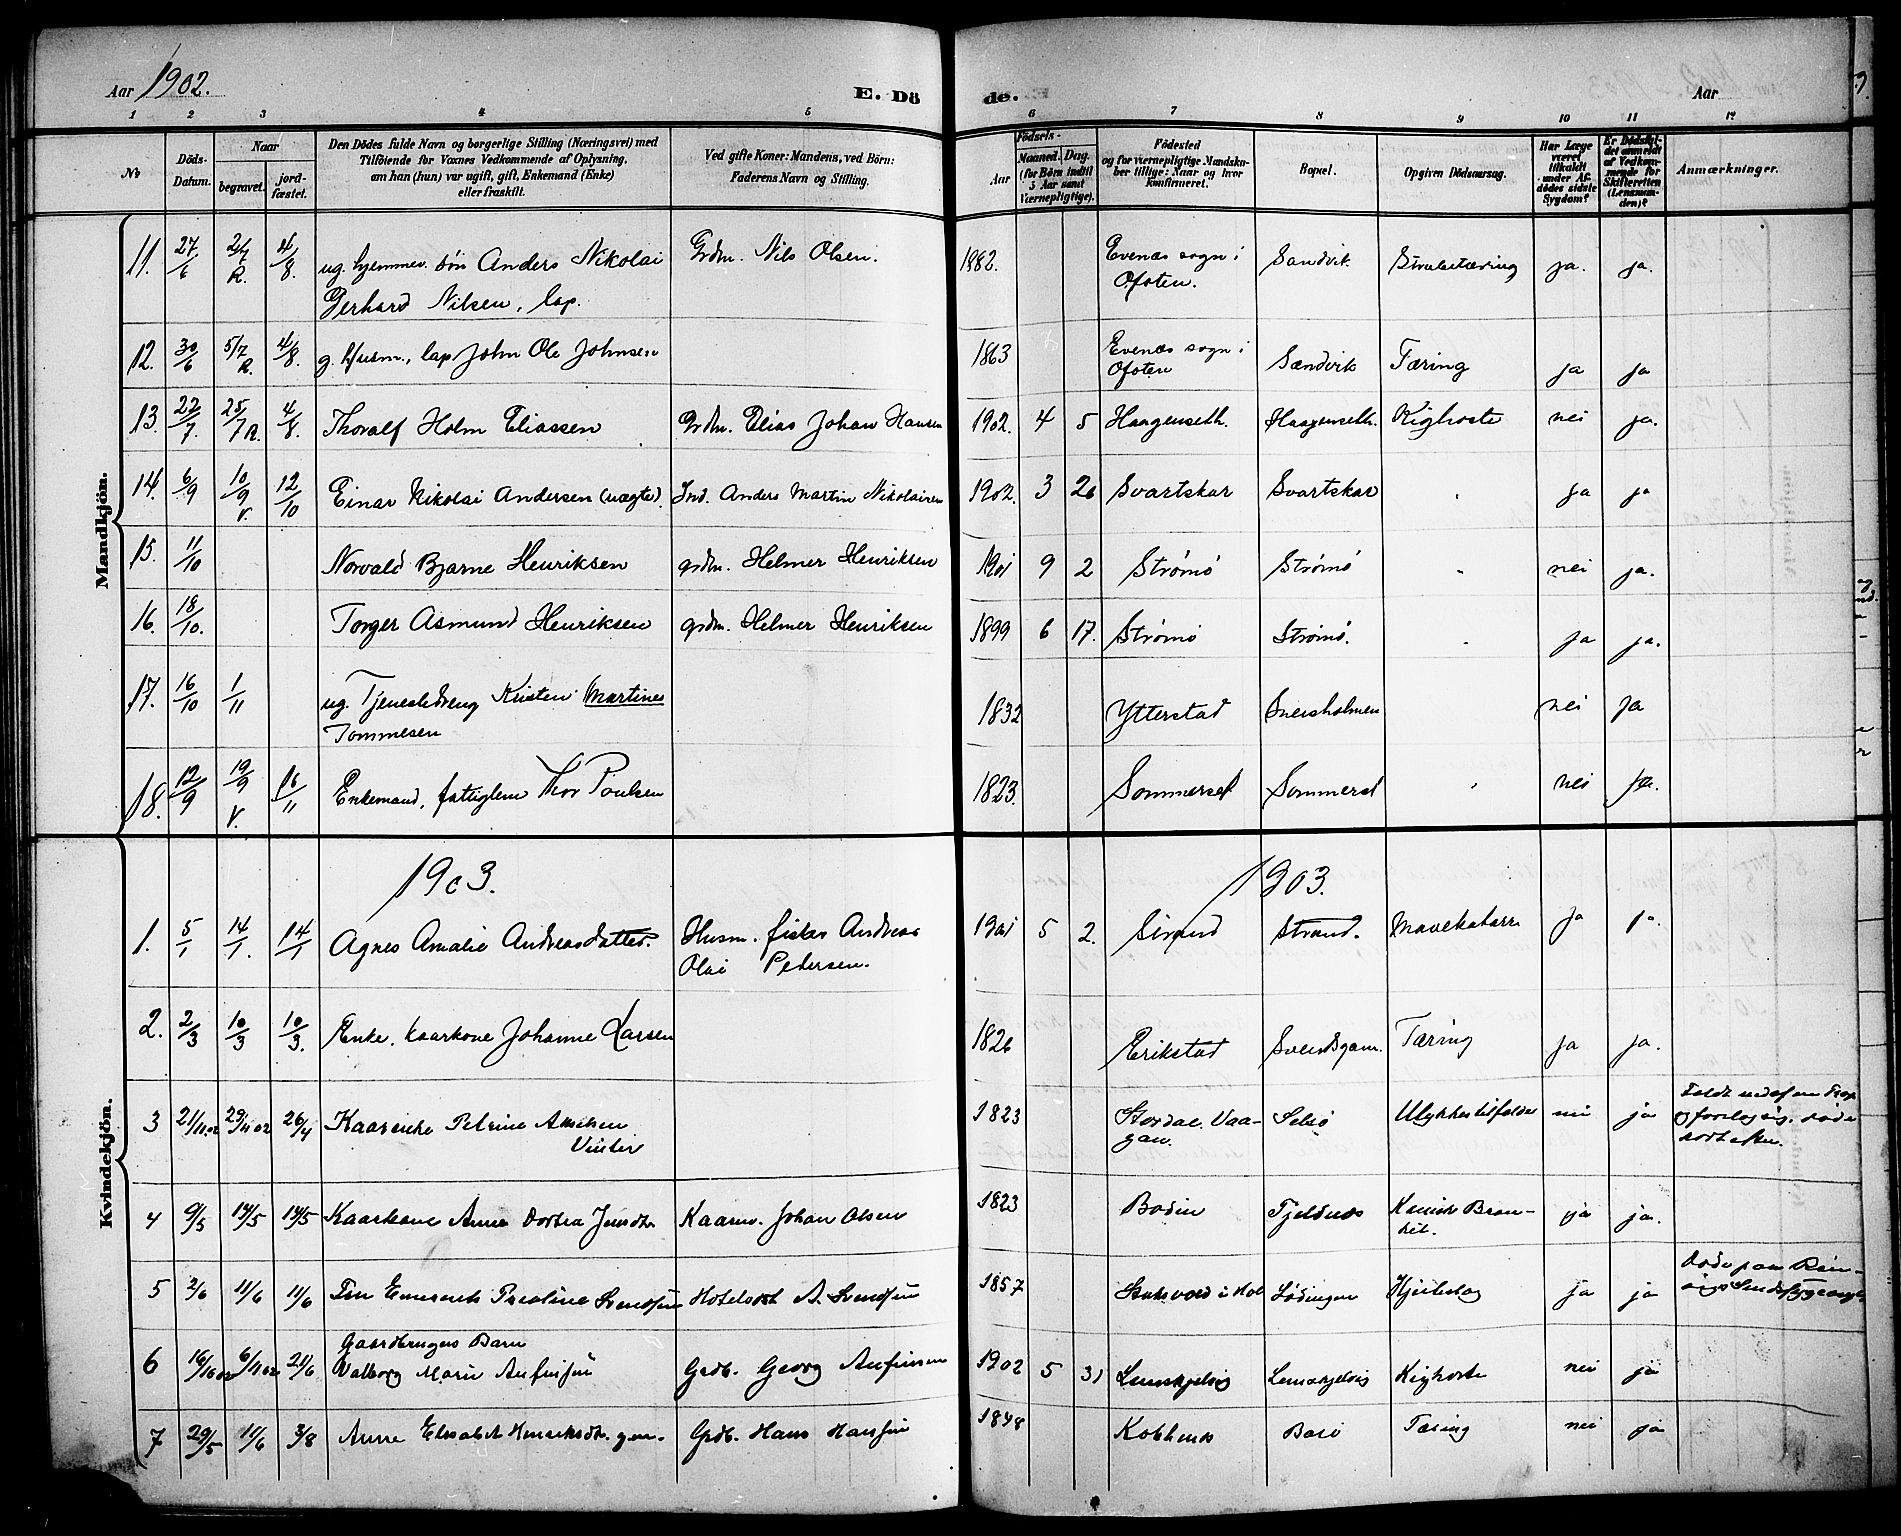 Aar 1902.
E. Dö
de.
Aar
1 2 3 4 5 6 7 8 9 10 11 12
No
Döds-Datum.
Naar
begravet.
jord-fæstet.
Den Dödes fulde Navn og borgerlige Stilling (Næringsvei) med
Tilföiende for Voxnes Vedkommende af Oplysning,
om han (hun) var ugift, gift, Enkemand (Enke)
eller fraskilt.
Ved gifte Koner: Mandens, ved Börn:
Faderens Navn og Stilling.
Födsels-
Aar
Maaned.
Dag.
(for Börn indtil
5 Aar samt
Værnepligtige).
Födested
og for værnepligtige Mandskaber tillige: Naar og hvor
konfirmeret.
Bopæl.
Opgiven Dödsaarsag.
Har Læge
været
tilkaldt
under Afdödes sidste
Sygdom?
Er Dödsfaldet anmeldt
af Vedkommende for
Skifteretten
(Lensmanden)?
Anmærkninger.
Mandkjön.
11. 27/6 2/7 R. 4/8. ug. hjemmev. søn Anders Nikolai Grdm. Nils Olsen. 1882. Evenes sogn i Sandvik. Strubetæring ja. ja.
Gerhard Nilsen, lap. Ofoten.
12. 30/6 5/7 R. 4/8. g. Husm., lap John Ole Johnsen 1863 Evenæs sogn i Sandvik Tæring ja ja
Ofoten
13. 22/7. 25/7 R. 4/8. Thoralf Holm Eliassen Grdm. Elias Johan Hansen 1902. 4 5 Haagenseth. Haagenseth. Kighoste nei ja.
14. 6/9 10/9 V. 12/10 Einar Nikolai Andersen (uægte). Ind. Anders Martin Nikolaisen 1902. 3 26 Svartskar Svartskar " ja ja
15. 11/10 Norvald Bjarne Henriksen grdm. Helmer Henriksen 1901 9 2 Strømø Strømø " nei ja.
16. 18/10. Torger Asmund Henriksen grdm. Helmer Henriksen 1899 6 17. Strømø Strømø. " ja ja.
17. 16/10 1/11 ug. Tjenestedreng Kristen Martines 1832 Ytterstad Sneisholmen nei ja
Tommesen
18. 12/9 19/9 V. 16/11 Enkemand, fattiglem Thor Poulsen 1823. Sommerset Sommerset " nei ja.
Kvindekjön.
1903. 1903.
1. 5/1 14/1. 14/1 Agnes Amalie Andreasdatter. Husm. fisker Andreas 1901 5 2. Strand Strand. Mavekatarr ja ja.
Olai Petersen.
2. 2/3 10/3 10/3. Enke, kaarkone Johanne Larsen 1826 Erikstad Tæring ja ja.
3 21/11 02 29/11 02 26/4 Petrine 1823 Ulykkestilfælde nei ja
Vinter
4 9/5 14/5 14/5 Kaarkone Anne Dortea Kaarm. Johan Olsen 1823 Bodin Fjeldnes ja ja.
5 2/6 11/6 11/6 A. Svendsen 1857 Lødingen Hjerteslag ja ja
Gaardbrugers Barn
6 16/10 02 6/11 02 21/6 Valborg Marie Anfinsen Grdb. Georg Anfinsen 1902 5 31 Kighoste nei ja
7 29/5 11/6 3/8 Anne Elisabet Grdb. Hans Hansen 1848 Barø Tæring nei ja